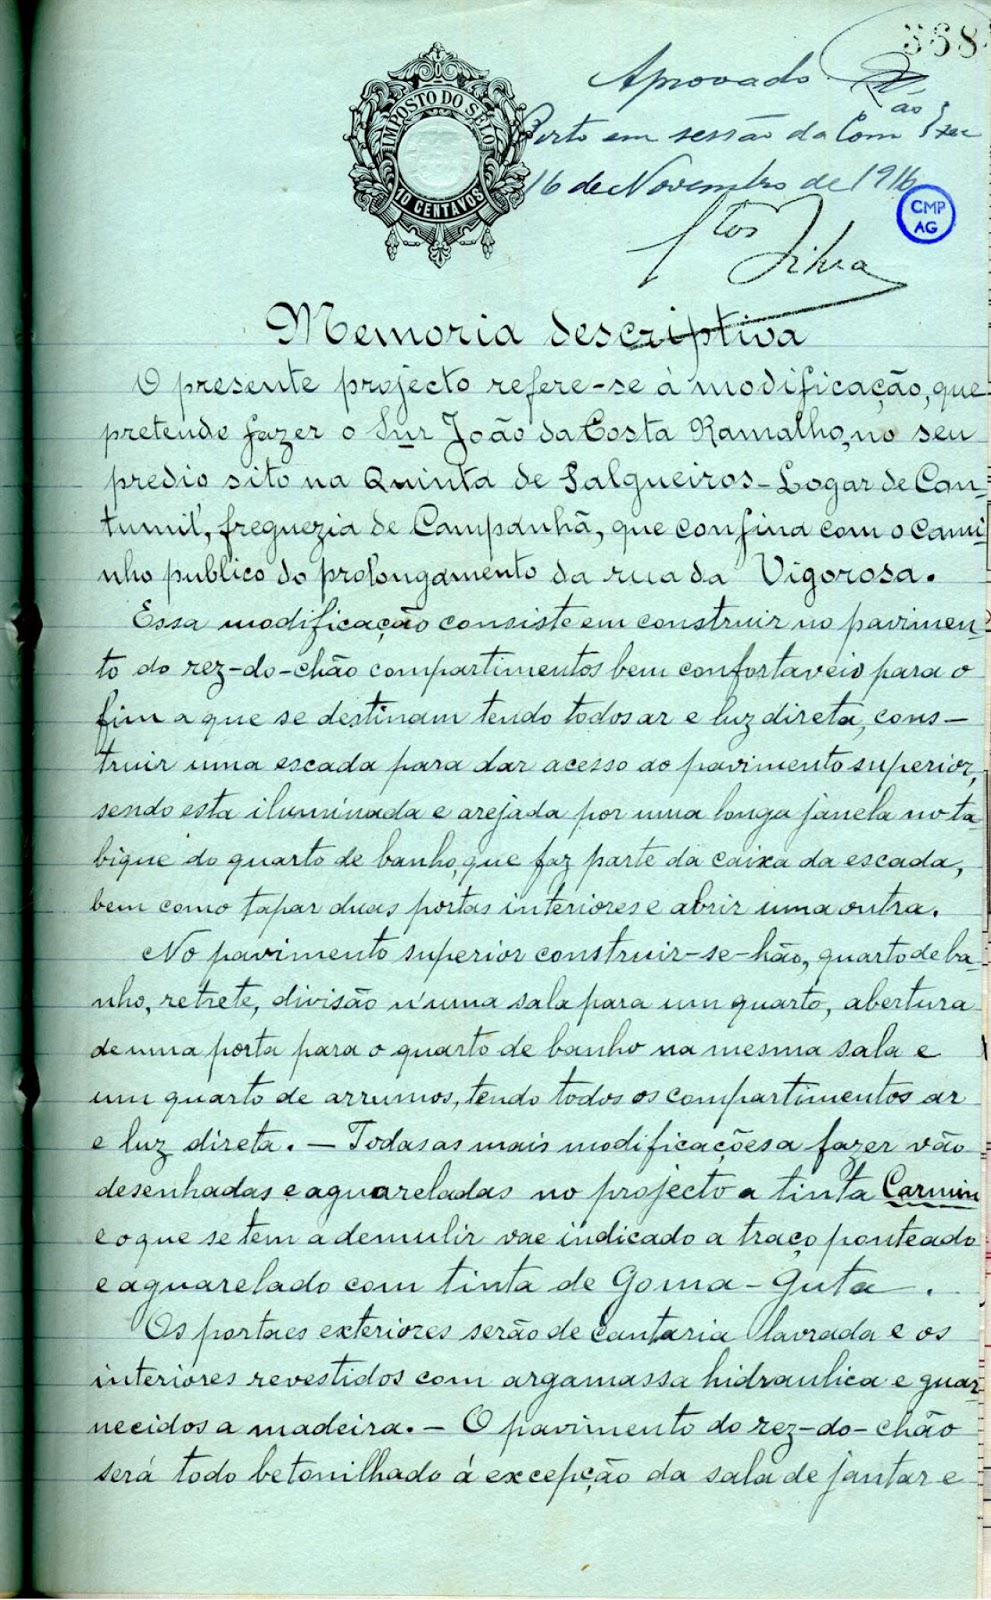 368
Aprovado
Porto em sessão da Com.ão Exec
16 de Novembro de 1916
Stos Silva
IMPOSTO DO SELO
10 CENTAVOS
CMP
AG
Memoria descriptiva
O presente projecto refere-se á modificação, que
pretende fazer o Snr João da Costa Ramalho, no seu
predio sito na Quinta de Salgueiros - Logar de Con-
tumil, freguezia de Campanhã, que confina com o cami-
nho publico do prolongamento da rua da Vigorosa.
Essa modificação consiste em construir no pavimen-
to do rez-do-chão compartimentos bem confortaveis para o
fim a que se destinam tendo todos ar e luz direta, cons-
truir uma escada para dar acesso ao pavimento superior,
sendo esta iluminada e arejada por uma longa janela no ta-
bique do quarto de banho, que faz parte da caixa da escada,
bem como tapar duas portas interiores e abrir uma outra.
No pavimento superior construir-se-hão, quarto de ba-
nho, retrete, divisão n'uma sala para um quarto, abertura
de uma porta para o quarto de banho na mesma sala e
um quarto de arrumos, tendo todos os compartimentos ar
e luz direta. - Todas as mais modificações a fazer vão
desenhadas e aguareladas no projecto a tinta Carmin
e o que se tem a demulir vae indicado a traço ponteado
e aguarelado com tinta de Goma-Guta.
Os portaes exteriores serão de cantaria lavrada e os
interiores revestidos com argamassa hidraulica e guar-
necidos a madeira. - O pavimento do rez-do-chão
será todo betonilhado á excepção da sala de jantar e